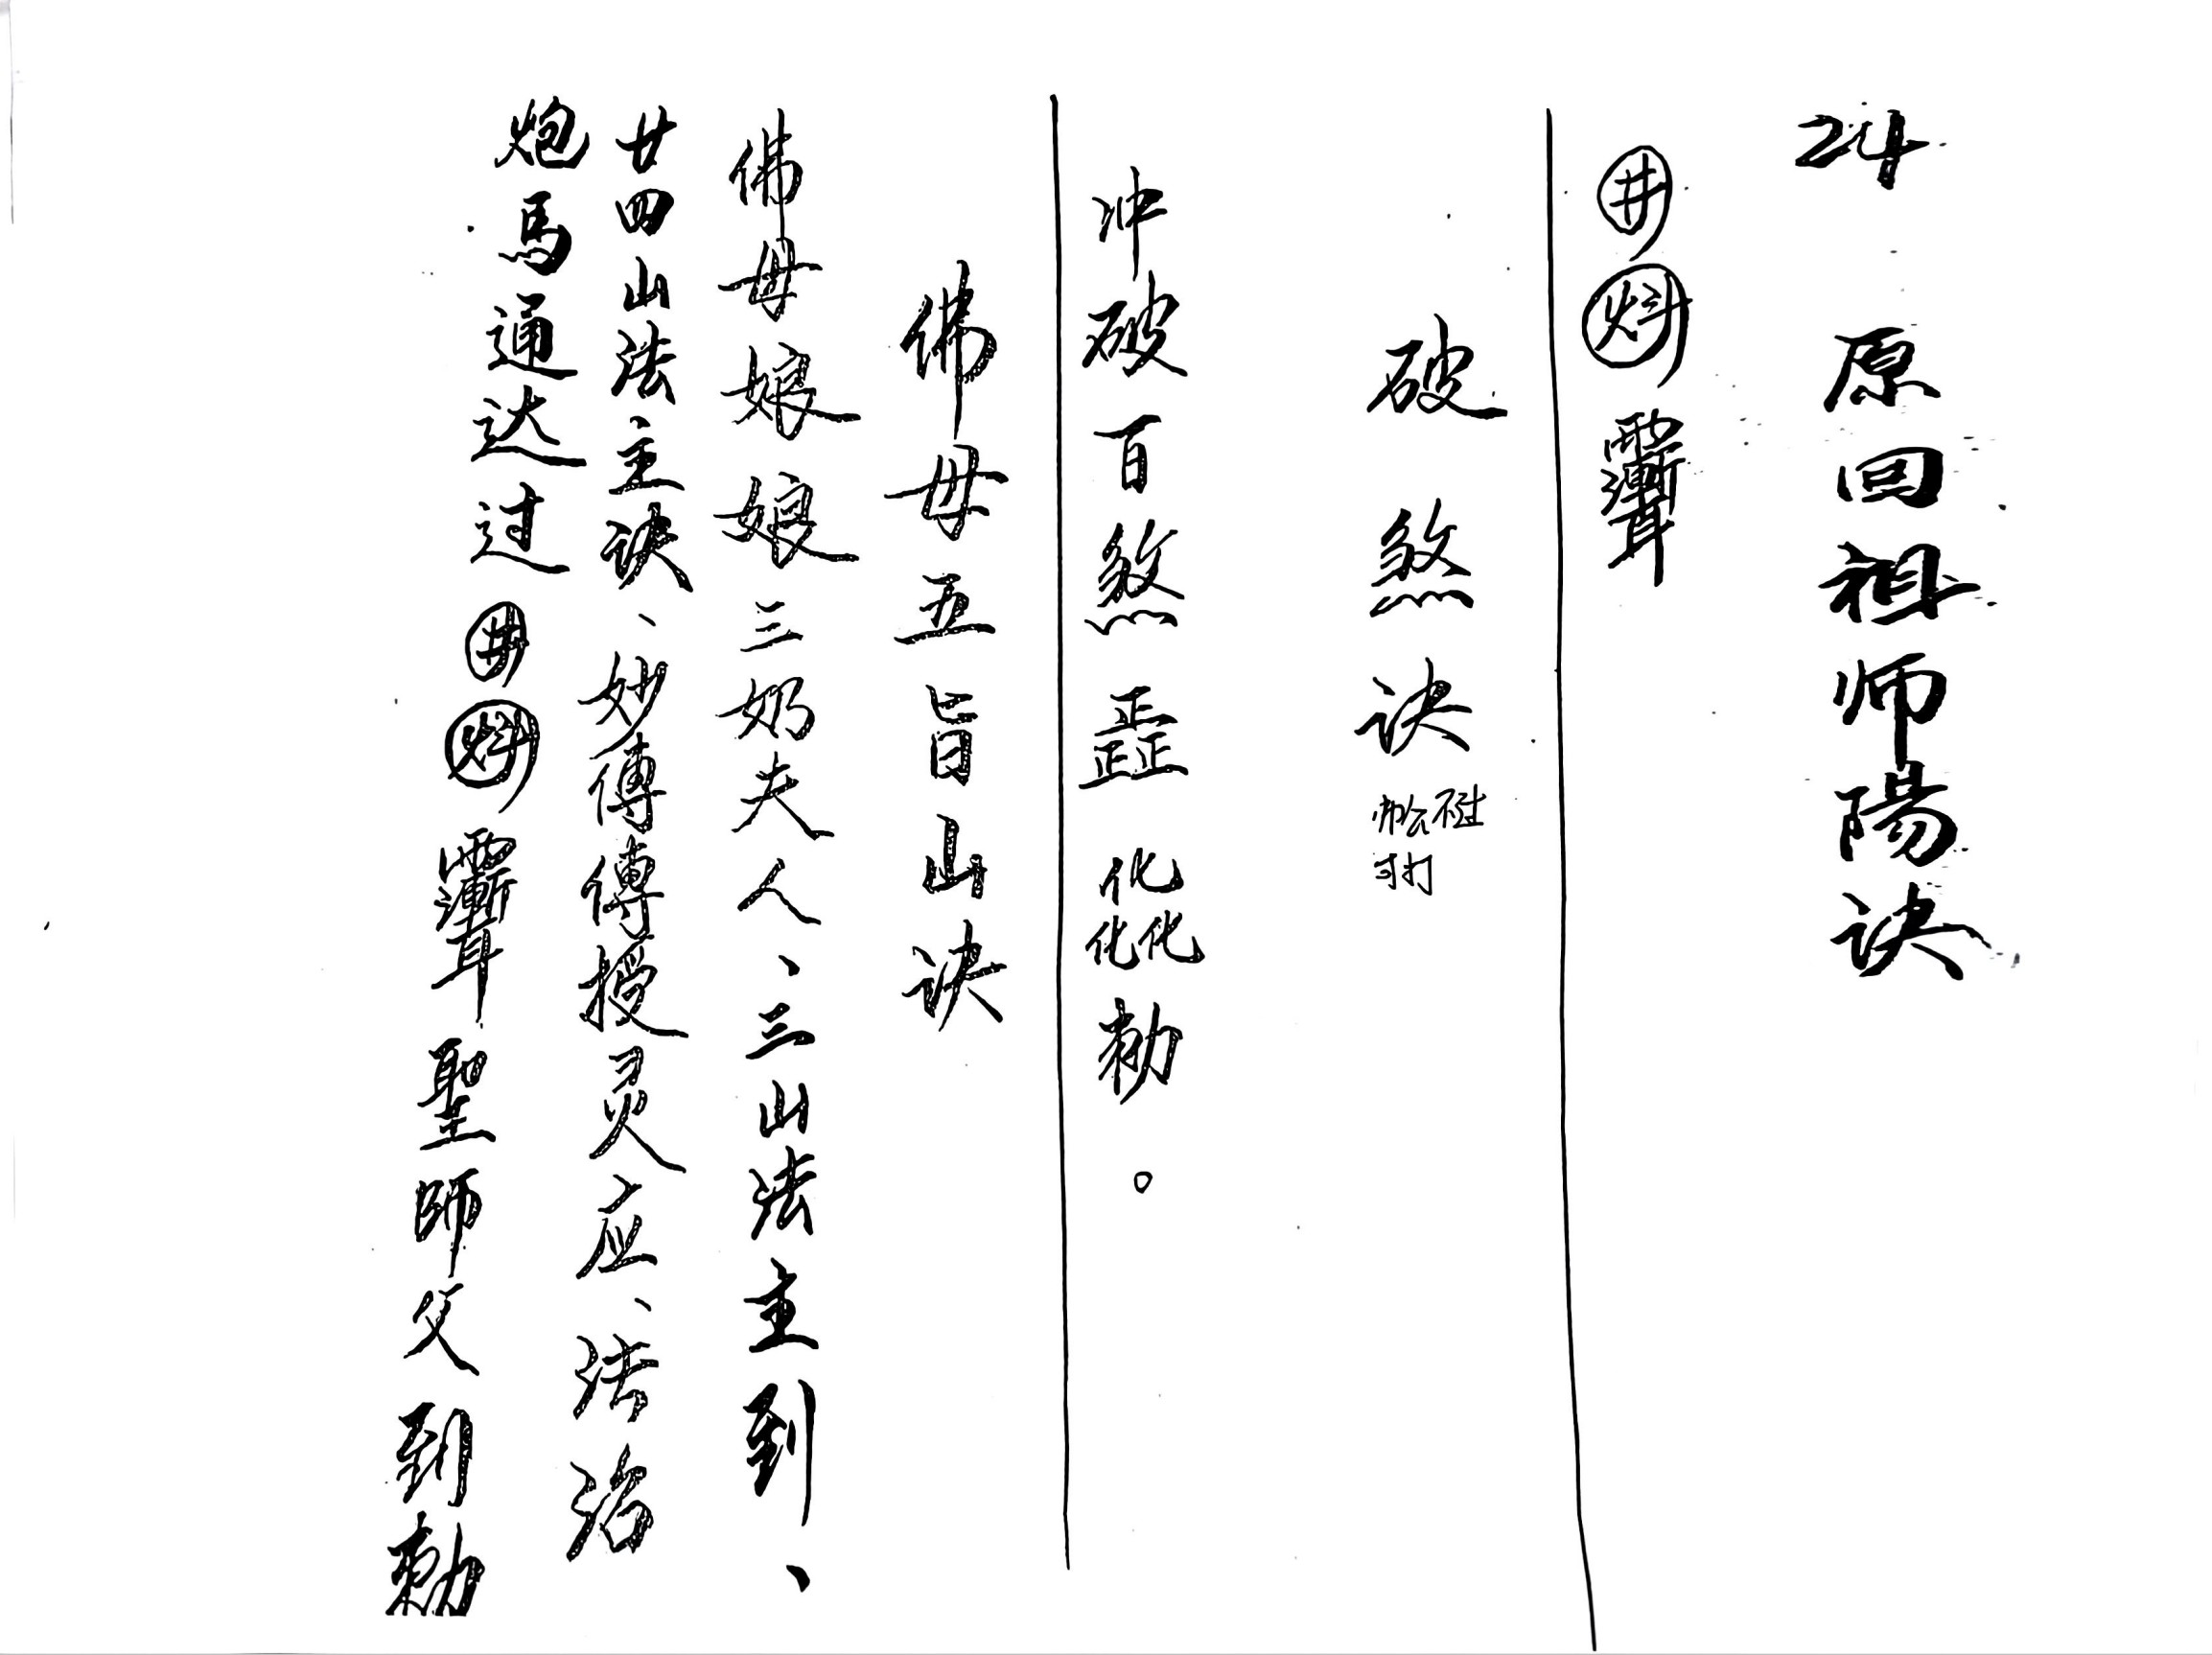 24 原回祖师陽诀
井
破煞诀
冲破百煞 勅。
佛母五旨山诀
佛母娘娘三奶夫人、三山法主到、
廿四山法主诀、妙傳傳授灵应、法治
炮馬通达过 井 聖師父到勅